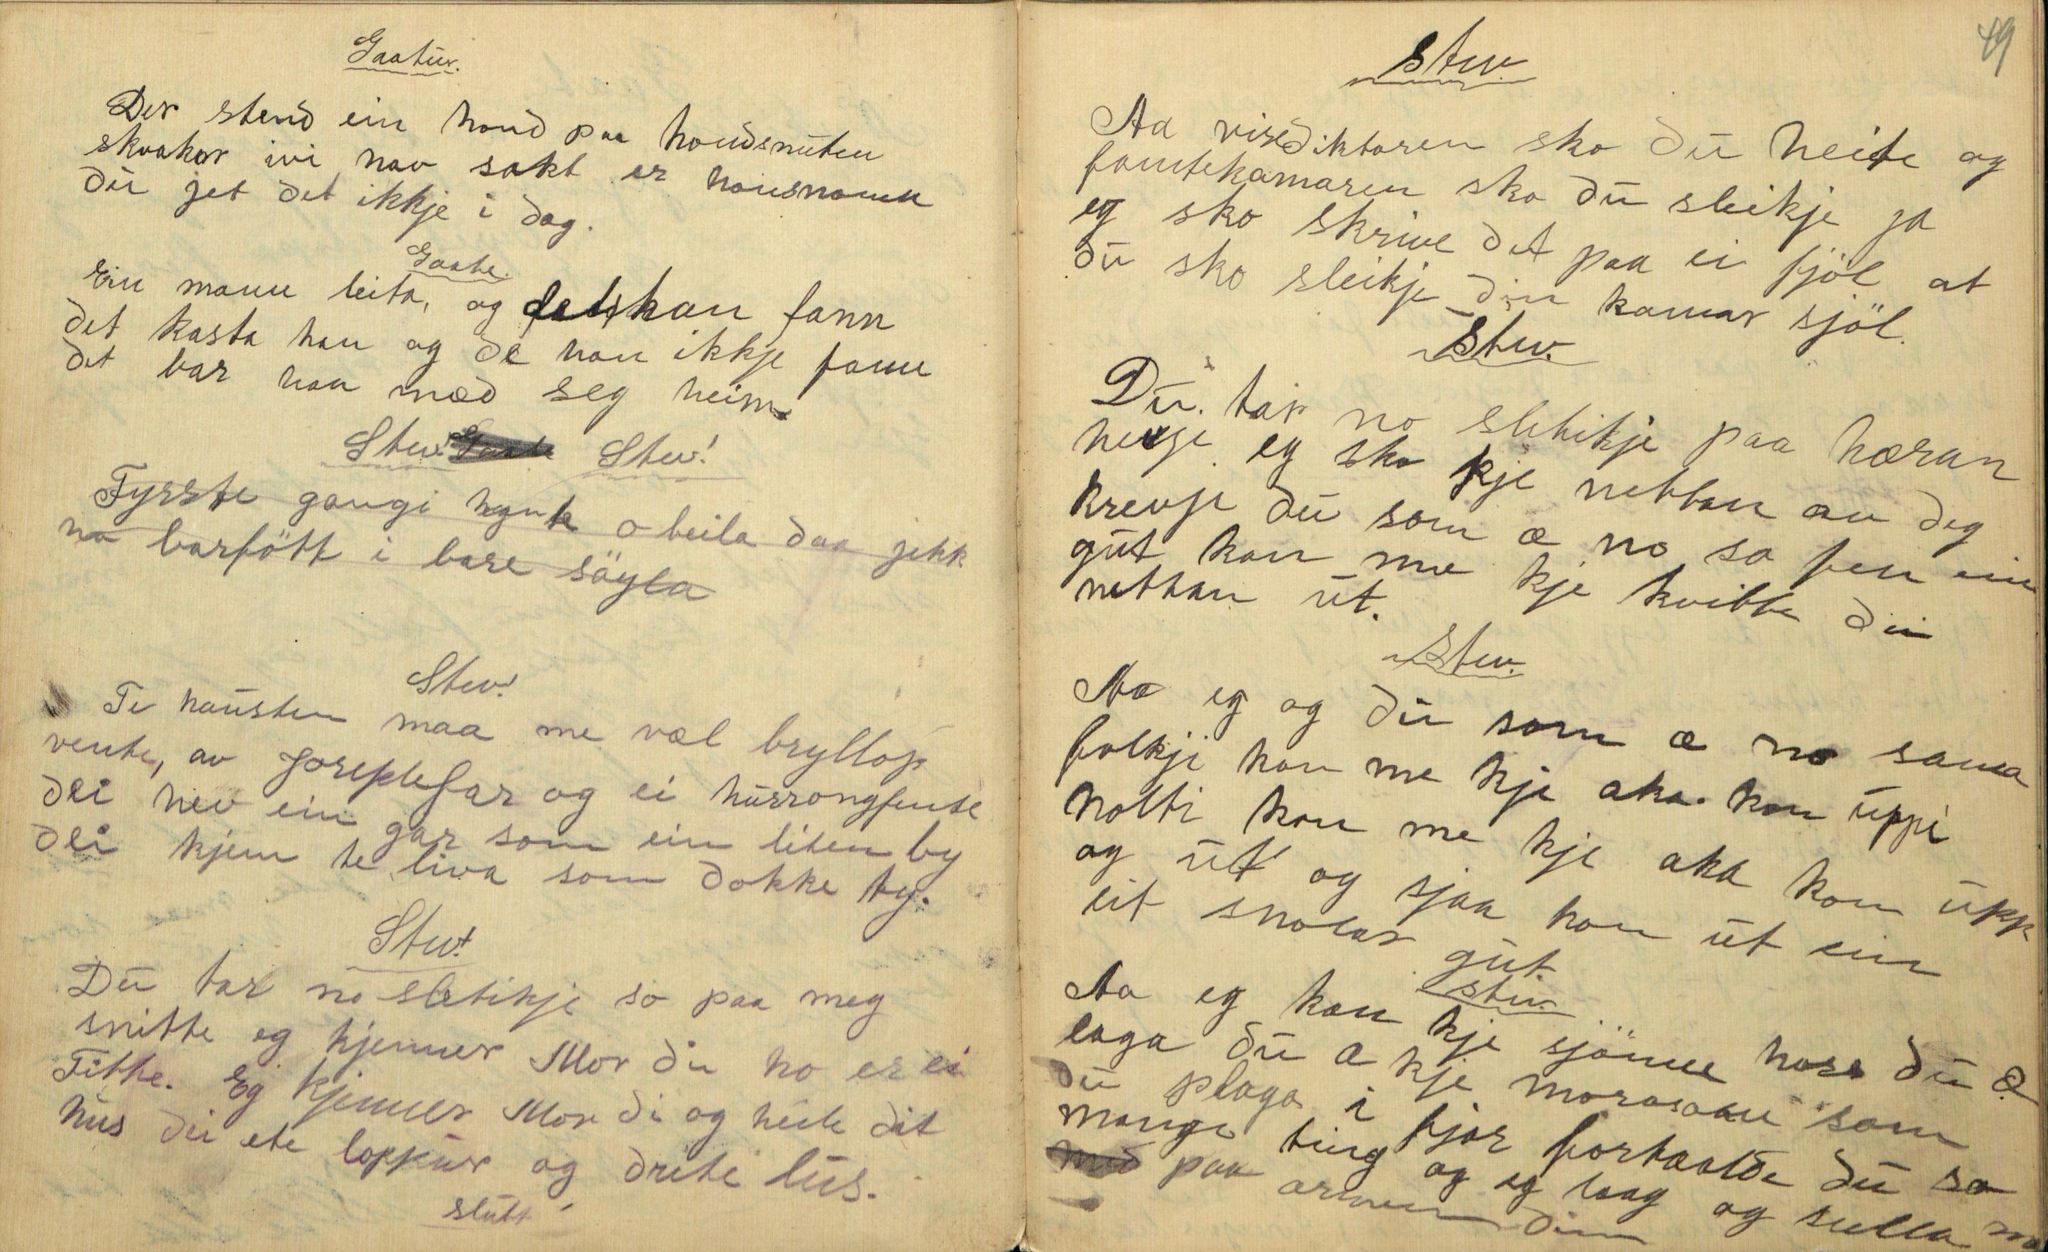 Gaatur.
Der stend ein hond paa hondsnuten
skvaker ivi hav sakt er hausnamn
du jet det ikkje i dag.
Gaate.
Ein mann leita, og han fann
det kasta han og de han ikkje fann
det bar han med seg heim
Stev! Stev!
Fyrste gangi o beila daa jekk
na barfött i bare söyla
Stev!
Te hausten maa me væl bryllop
vente, av far og ei
dei hev ein gar som ein liten by
dei kjem te liva som dokke ty.
Stev!
Du tar no slettikje so paa meg
snitte eg kjenner Mor di ho er ei
Titte. Eg kjenner Mor di og heile dit
hus dei ete loppur og drite lus.
slutt
49
Stev.
Aa visediktaren ska du heite og
fantekamaren ska du sleikje ja
eg ska skrive det paa ei fjöl at
du ska sleikje din kamar sjöl.
Stev.
Du tar no slettikje paa hæran
hengje eg ska kje nettan av deg
krevje du som æ no so fen ein
gut kan me kje kvitte din
nettan ut.
Stev.
Aa eg og du som æ no sama
folkji kan me kje aka kom uppi
kolti kan me kje aka kom upp
og ut og sjaa kom ut ein
eit snolar gut.
Stev.
Aa eg kan kje sjönne hass du æ
laga du æ kje morosam som
du plaga i fjor fortaalde du so
mange ting og eg laag og sulla
paa armen din